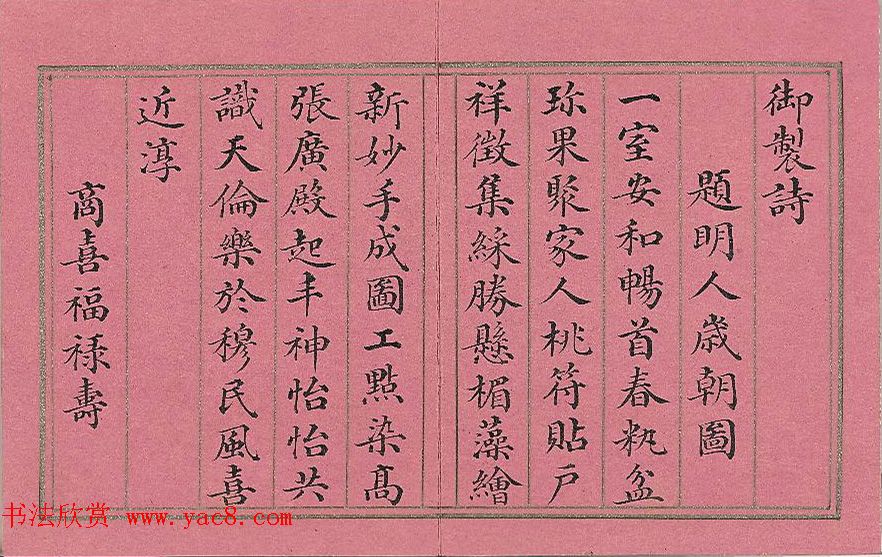 御製詩
題明人歲朝圖
一室安和暢首春執盆
珎果聚家人桃符貼戸
祥徵集綵勝懸楣藻繪
新妙手成圖工點染髙
張廣殿起丰神怡怡共
識天倫樂於穆民風喜
近淳
商喜福祿壽
书法欣赏 www.yac8.com